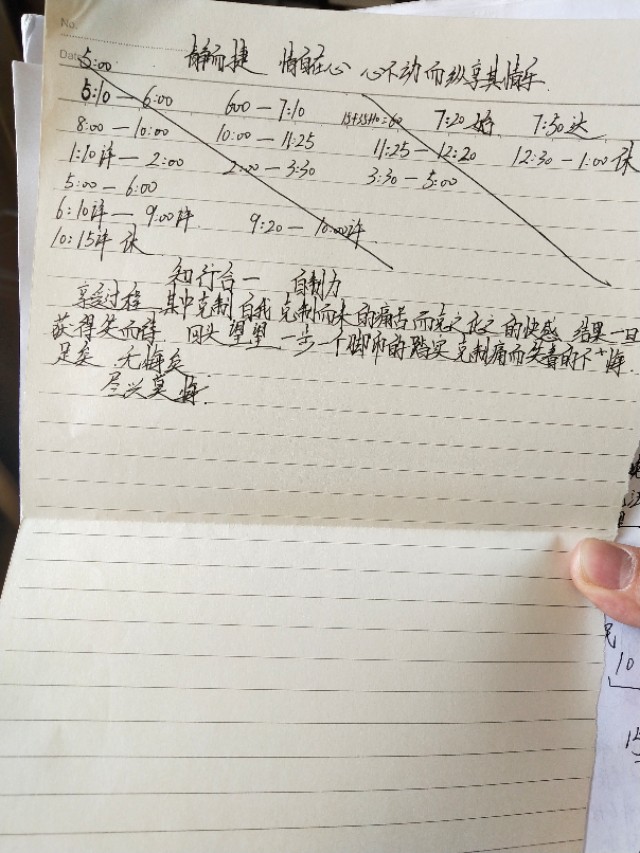 No.
Date 5:00
静而捷 情自在心 心不动而纵享其情乐
5:10 — 6:00 6:00 — 7:10 15+35+10=60 7:20 始 7:50 达
8:00 — 10:00 10:00 — 11:25 11:25 — 12:20 12:30 — 1:00 休
1:10许 — 2:00 2:00 — 3:30 3:30 — 5:00
5:00 — 6:00
6:10许 — 9:00许 9:20 — 10:00许
10:15许 休
知行合一 自制力
享受过程 其中克制自我 克制而来的痛苦而克之 的快感 结果一旦
获得失而得 回头望望 一步一个脚印的踏实 克制痛而失喜的不悔
足矣 无悔矣
尽兴莫悔.
10